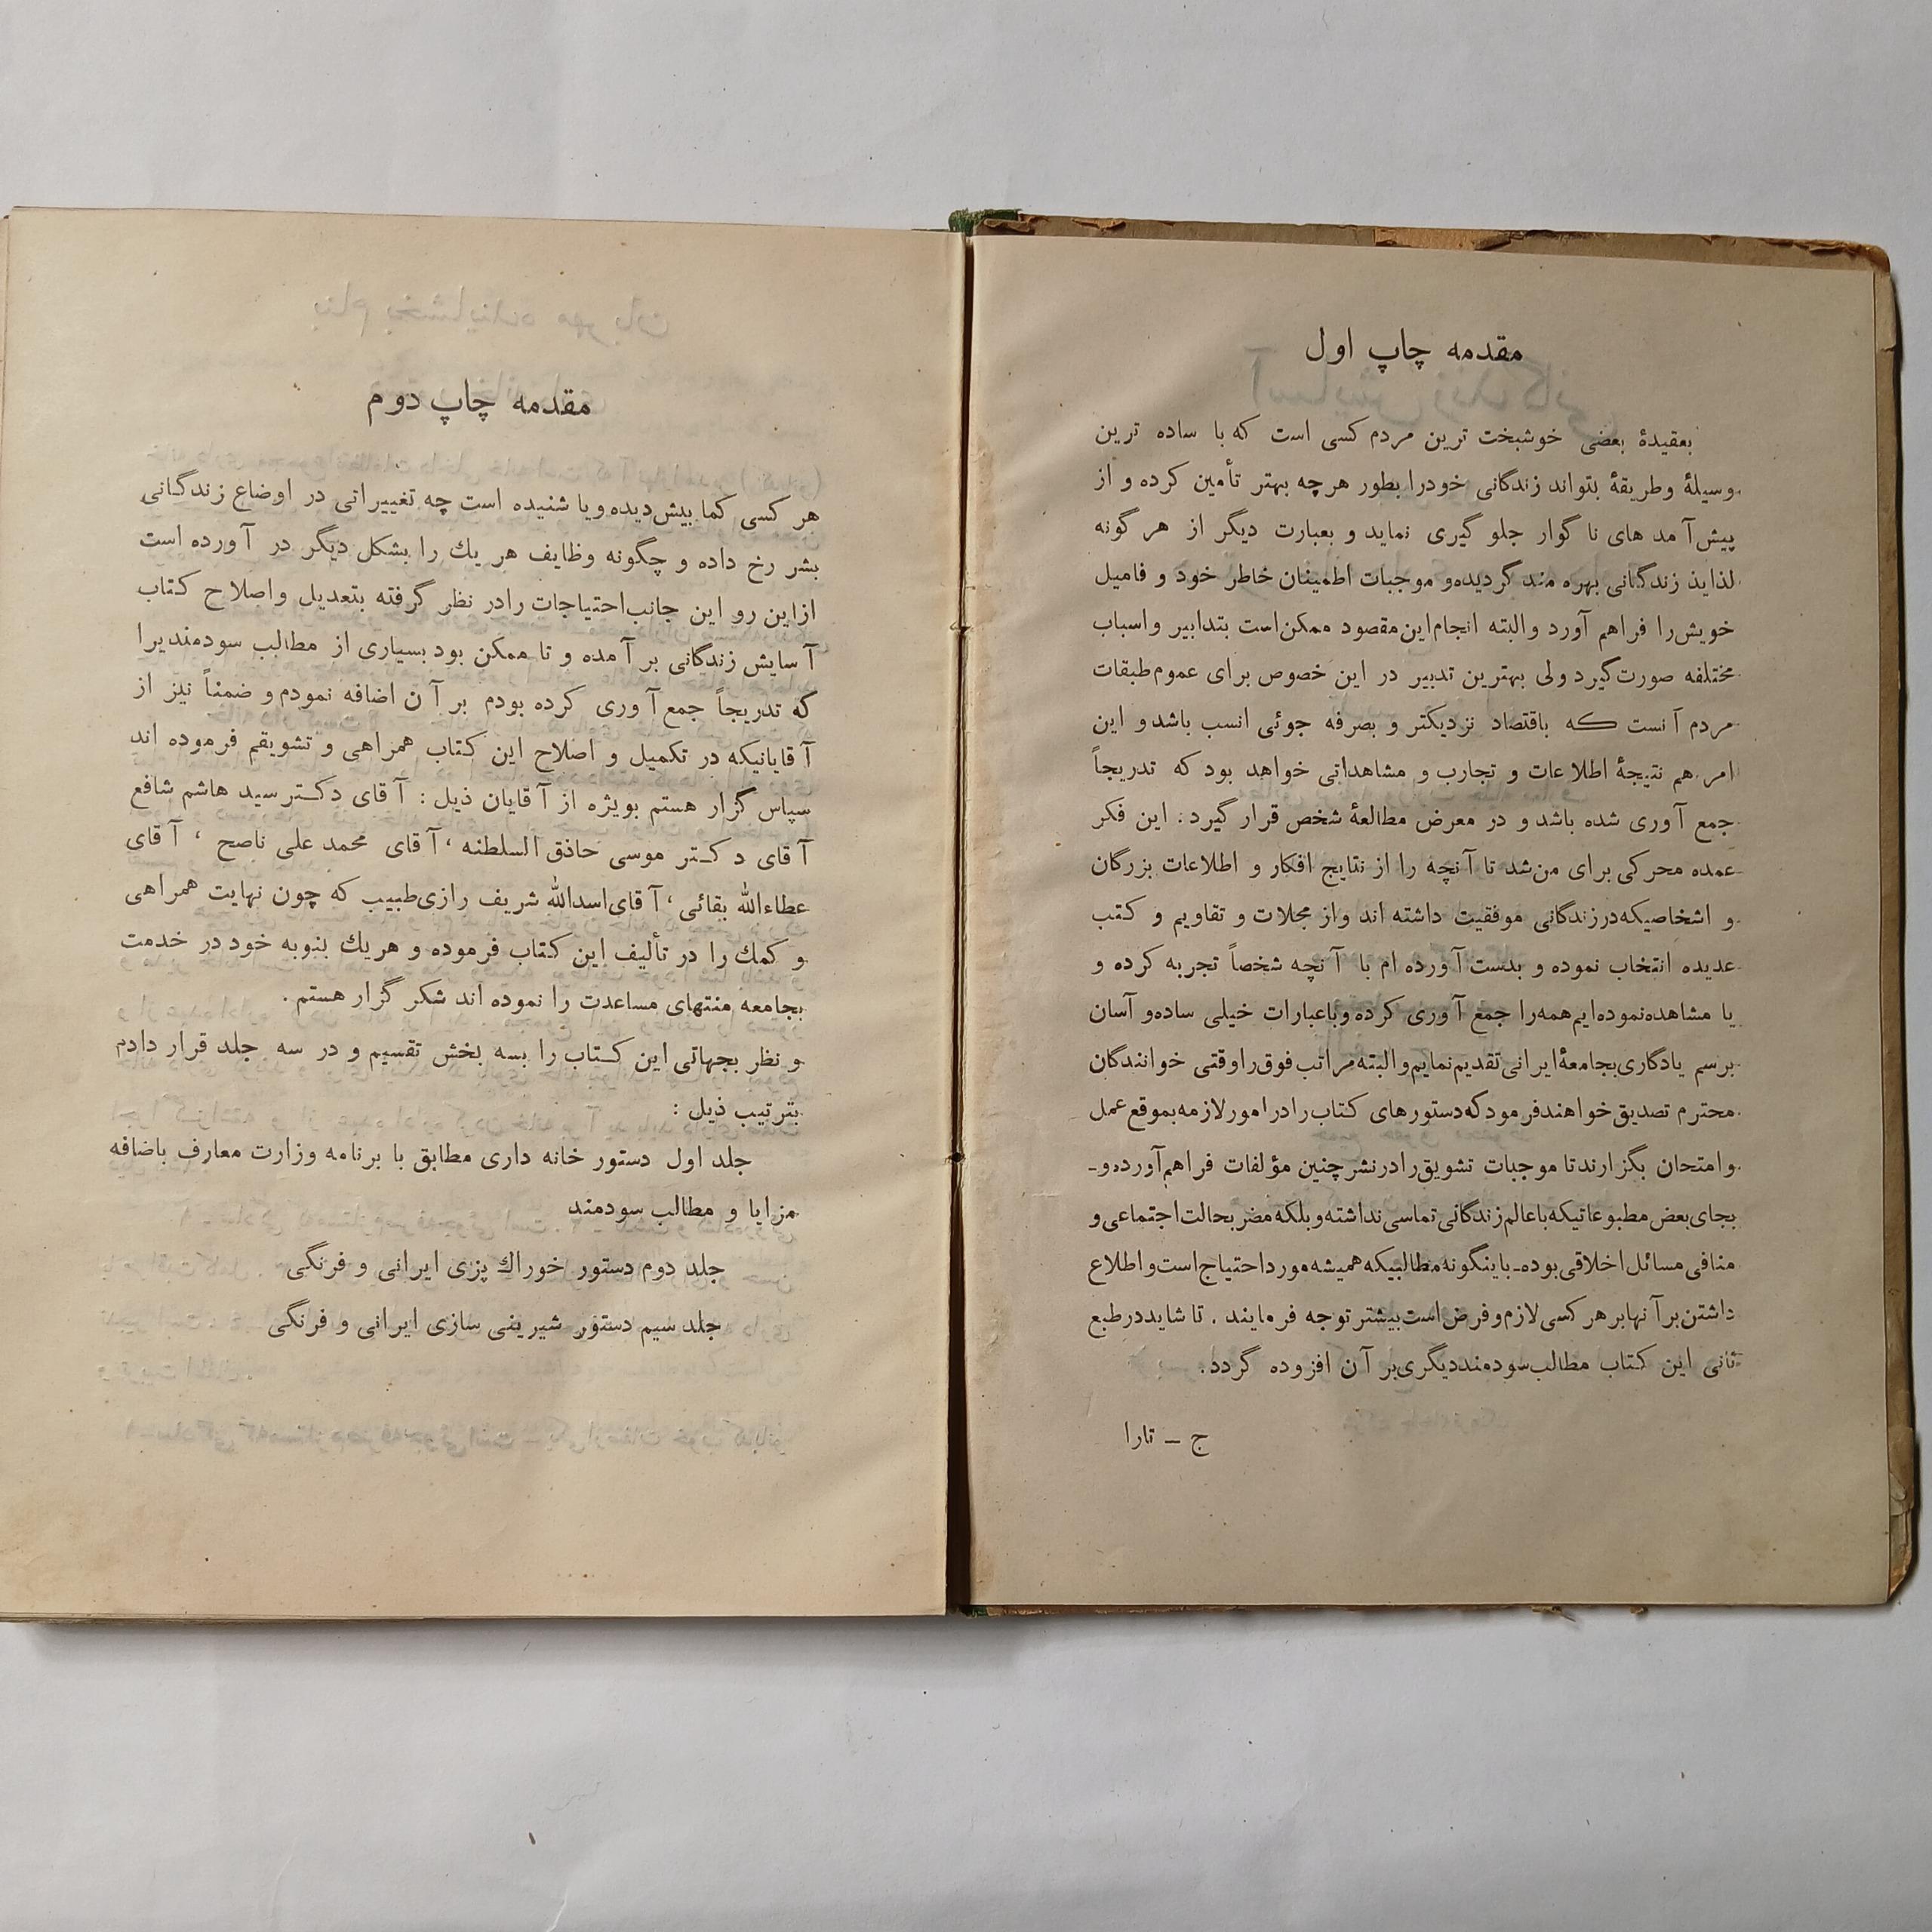 مقدمه چاپ اول
بعقیدهٔ بعضی خوشبخت ترین مردم کسی است که با ساده ترین
وسیلهٔ وطریقهٔ بتواند زندگانی خودرا بطور هرچه بهتر تأمین کرده و از
پیش‌آمد های ناگوار جلو گیری نماید و بعبارت دیگر از هر گونه
لذایذ زندگانی بهره مند گردیده‌و موجبات اطمینان خاطر خود و فامیل
خویش‌را فراهم آورد والبته انجام‌این‌مقصود ممکن‌است بتدابیر واسباب
مختلفه صورت‌گیرد ولی بهترین تدبیر در این خصوص برای عموم‌طبقات
مردم آنست که باقتصاد نزدیکتر و بصرفه جوئی انسب باشد و این
امر هم نتیجهٔ اطلاعات و تجارب و مشاهداتی خواهد بود که تدریجاً
جمع آوری شده باشد و در معرض مطالعهٔ شخص قرار گیرد . این فکر
عمده محرکی برای من‌شد تا آنچه را از نتایج افکار و اطلاعات بزرگان
و اشخاصیکه‌درزندگانی موفقیت داشته اند واز مجلات و تقاویم و کتب
عدیده انتخاب نموده و بدست آورده ام با آنچه شخصاً تجربه کرده و
یا مشاهده‌نموده‌ایم‌همه‌را جمع آوری کرده وباعبارات خیلی ساده‌و آسان
برسم یادگاری‌بجامعهٔ‌ایرانی‌تقدیم‌نمایم‌والبته‌مراتب‌فوق‌راوقتی خوانندگان
محترم تصدیق‌خواهندفرمودکه‌دستورهای کتاب‌رادرامورلازمه‌بموقع‌عمل
وامتحان بگزارندتا موجبات تشویق‌رادرنشرچنین مؤلفات فراهم‌آورده‌و-
بجای‌بعض‌مطبوعاتیکه‌باعالم‌زندگانی‌تماسی‌نداشته‌وبلکه‌مضربحالت‌اجتماعی‌و
منافی‌مسائل‌اخلاقی‌بوده-باینگونه‌مطالبیکه‌همیشه‌مورداحتیاج‌است‌واطلاع
داشتن‌برآنهابرهرکسی‌لازم‌وفرض‌است‌بیشترتوجه فرمایند . تا شایددرطبع
ثانی این کتاب مطالب‌سودمنددیگری‌بر آن افزوده گردد.
ج ــ تارا
مقدمه چاپ دوم
هر کسی کما بیش‌دیده‌ویا شنیده است چه تغییراتی در اوضاع زندگانی
بشر رخ داده و چگونه وظایف هر یك را بشکل دیگر در آورده است
ازاین رو این جانب‌احتیاجات رادر نظر گرفته بتعدیل واصلاح کتاب
آسایش زندگانی بر آمده و تا ممکن بود بسیاری از مطالب سودمندیرا
که تدریجاً جمع آوری کرده بودم بر آن اضافه نمودم و ضمناً نیز از
آقایانیکه در تکمیل و اصلاح این کتاب همراهی و تشویقم فرموده اند
سپاس گزار هستم بویژه از آقایان ذیل : آقای دکتر سید هاشم شافع
آقای دکتر موسی حاذق السلطنه ، آقای محمد علی ناصح ، آقای
عطاءالله بقائی ، آقای‌اسدالله شریف رازی‌طبیب که چون نهایت همراهی
و کمك را در تألیف این کتاب فرموده و هریك بنوبه خود در خدمت
بجامعه منتهای مساعدت را نموده اند شکر گزار هستم .
و نظر بجهاتی این کتاب را بسه بخش تقسیم و در سه جلد قرار دادم
بترتیب ذیل :
جلد اول دستور خانه داری مطابق با برنامه وزارت معارف باضافه
مزایا و مطالب سودمند
جلد دوم دستور خوراك پزی ایرانی و فرنگی
جلد سیم دستور شیرینی سازی ایرانی و فرنگی